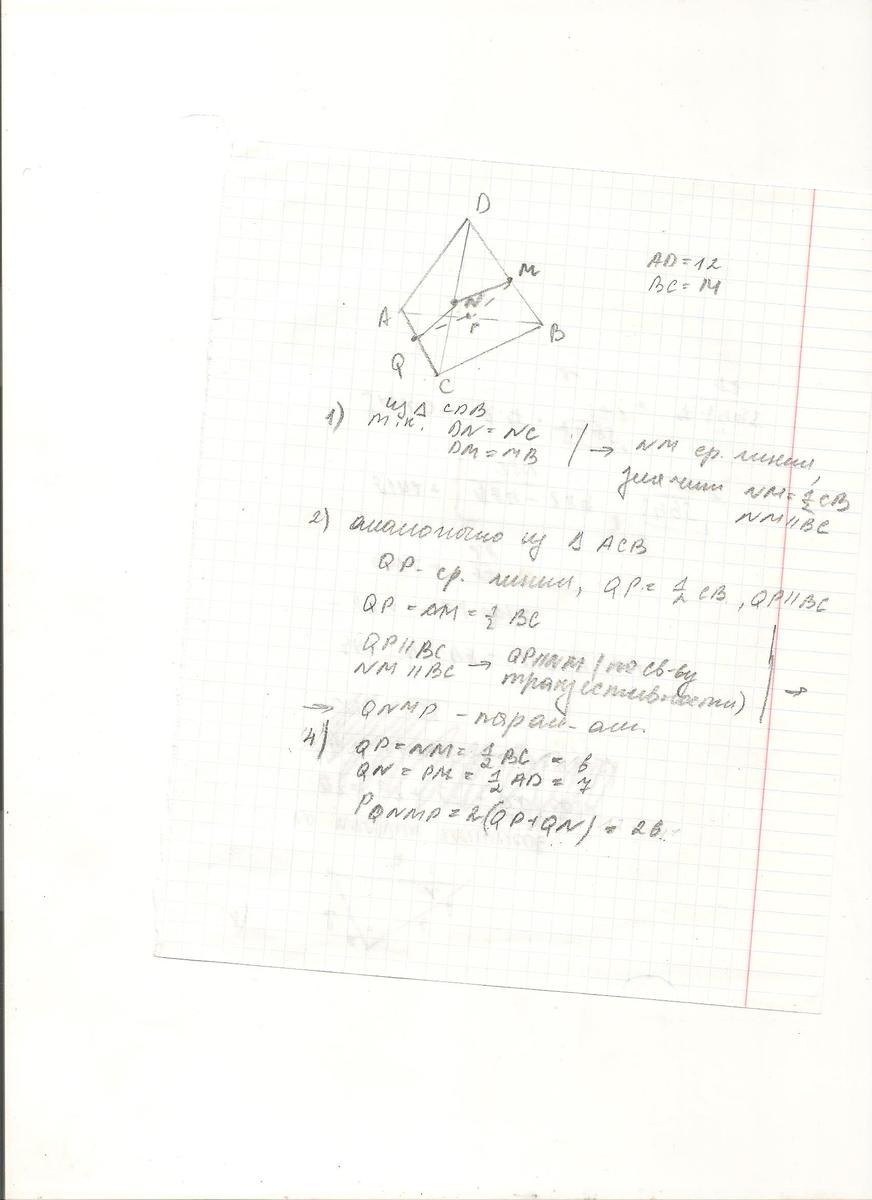 D
M
N
A
P
B
Q
C
AD=12
BC=14
1) из Δ CDB
т.к. DN=NC
DM=MB → NM ср. линия,
значит NM=1/2 CB
NM||BC
2) аналогично из Δ ACB
QP- ср. линия, QP=1/2 CB, QP||BC
QP=NM=1/2 BC
QP||BC
NM||BC → QP||NM (по св-ву
транзистивности) →
→ QNMP -парал-ам.
4) QP=NM=1/2 BC=6
QN=PM=1/2 AD=7
PQNMP=2(QP+QN)=26